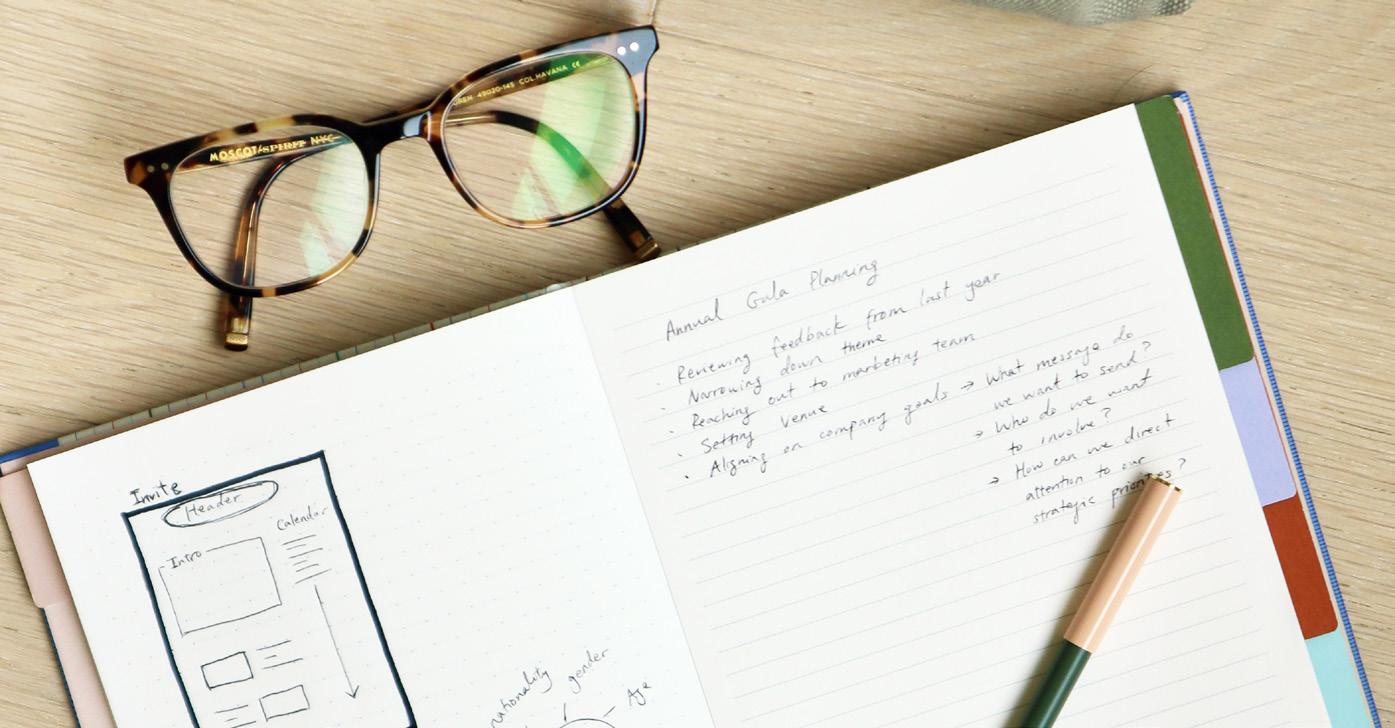 MOSCOT SPIRIT NYC
49020-145 COL.HAVANA CE
Invite
Header
Calendar
Intro
nationality
gender
Age
Annual Gala Planning
· Reviewing feedback from last year
· Narrowing down theme
· Reaching out to marketing team
· Setting venue
· Aligning on company goals → What message do
we want to send?
→ Who do we want
to involve?
→ How can we direct
attention to our
strategic priorities?